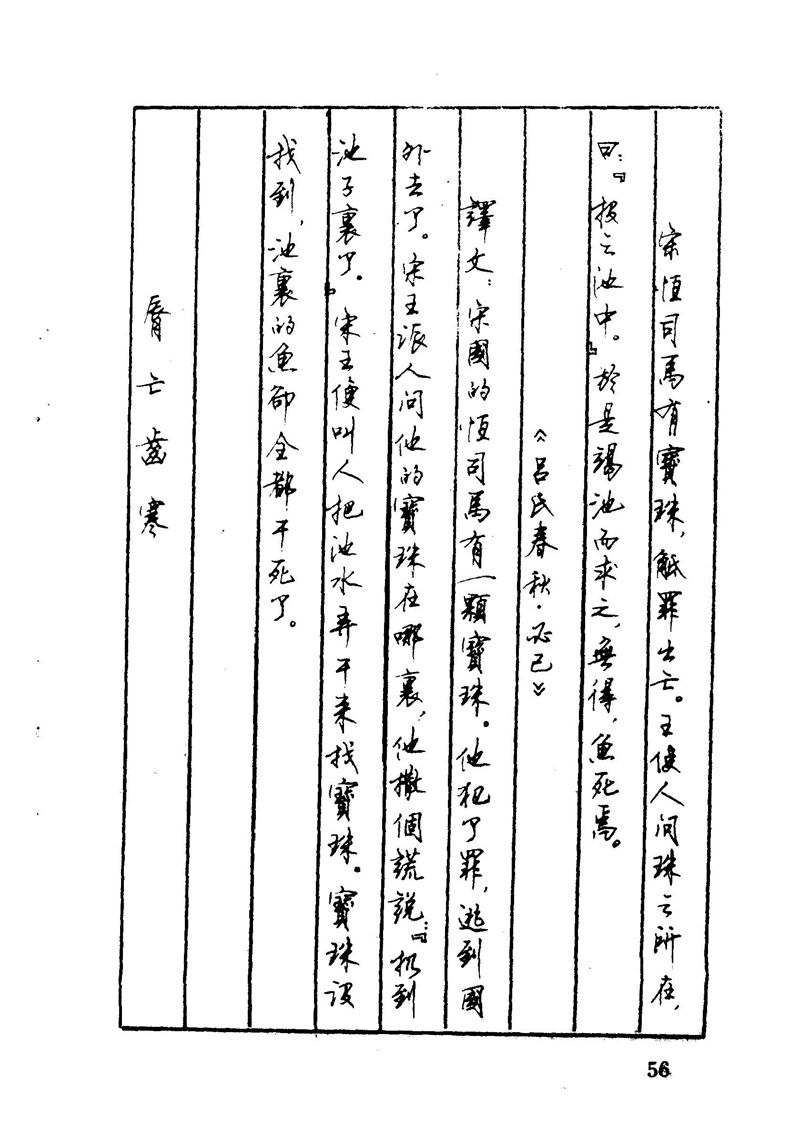 宋恒司馬有寶珠，觝罪出亡。王使人问珠之所在，
曰：『投之池中。』於是竭池而求之，無得，魚死焉。
《吕氏春秋·必己》
譯文：宋國的恒司馬有一顆寶珠。他犯了罪，逃到國
外去了。宋王派人问他的寶珠在哪裏，他撒個謊説：『扔到
池子裏了。』宋王便叫人把池水弄干来找寶珠。寶珠没
找到，池裏的魚卻全都干死了。
脣亡齒寒
56